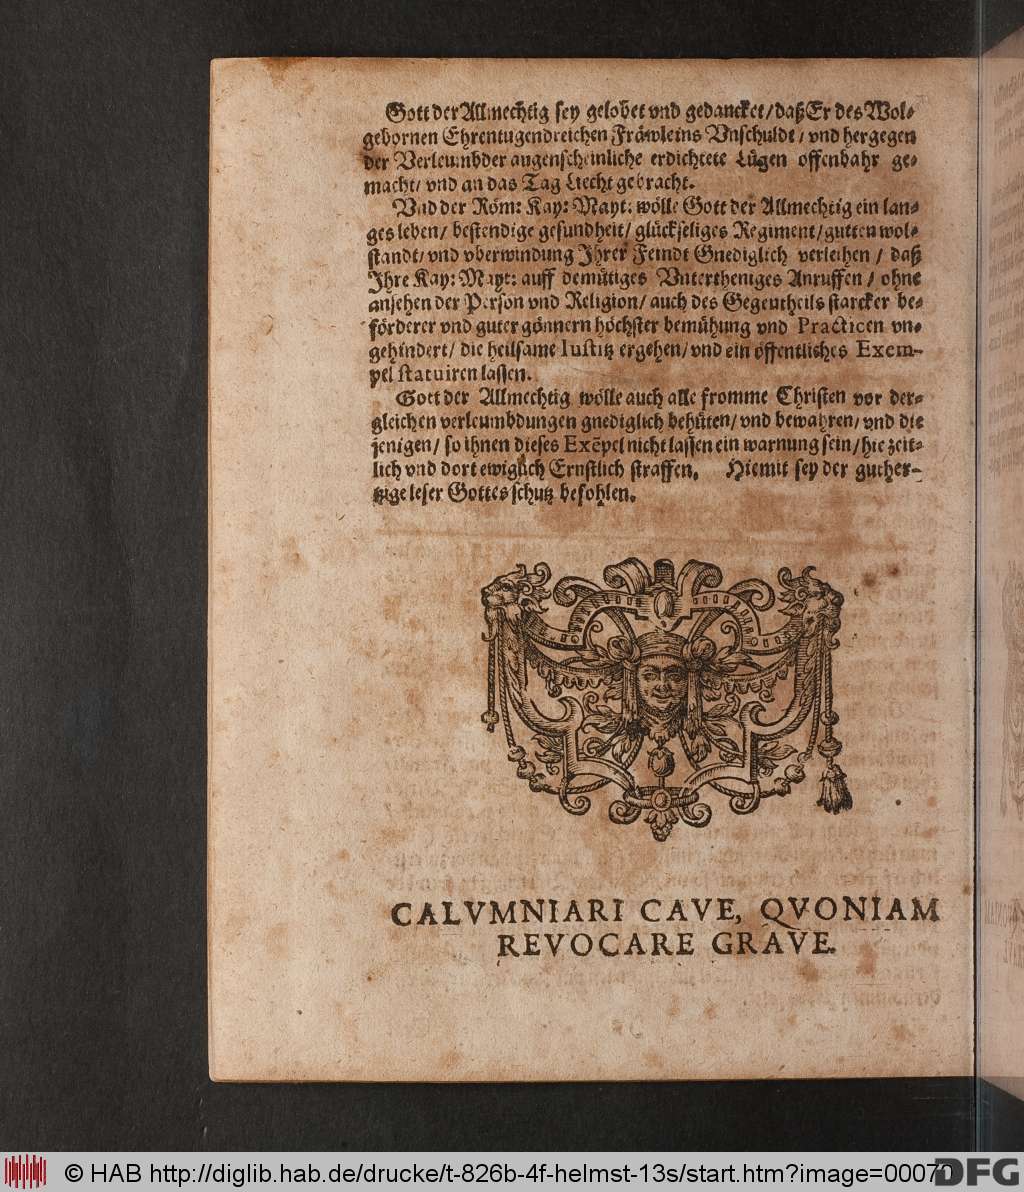 Gott der Allmechtig sey gelobet vnd gedancket/ daß Er des Wol-
gebornen Ehrentugendreichen Fräwleins Vnschuldt/ vnd hergegen
der Verleumbder augenscheinliche erdichtete Lügen offenbahr ge-
macht/ vnd an das Tag Liecht gebracht.
Vnd der Röm: Kay: Mayt: wölle Gott der Allmechtig ein lan-
ges leben/ bestendige gesundheit/ glückseliges Regiment/ gutten wol-
standt/ vnd vberwindung Ihrer Feindt Gnediglich verleihen/ daß
Ihre Kay: Mayt: auff demütiges Vntertheniges Anruffen/ ohne
ansehen der Person vnd Religion/ auch des Gegentheils starcker be-
förderer vnd guter gönnern höchster bemühung vnd Practicen vn-
gehindert/ die heilsame Iustitz ergehen/ vnd ein öffentliches Exem-
pel statuiren lassen.
Gott der Allmechtig wölle auch alle fromme Christen vor der-
gleichen verleumbdungen gnediglich behüten/ vnd bewahren/ vnd die
jenigen/ so ihnen dieses Exēpel nicht lassen ein warnung sein/ hie zeit-
lich vnd dort ewiglich Ernstlich straffen. Hiemit sey der guther-
tzige leser Gottes schutz befohlen.
CALVMNIARI CAVE, QVONIAM
REVOCARE GRAVE.
© HAB http://diglib.hab.de/drucke/t-826b-4f-helmst-13s/start.htm?image=00070
DFG